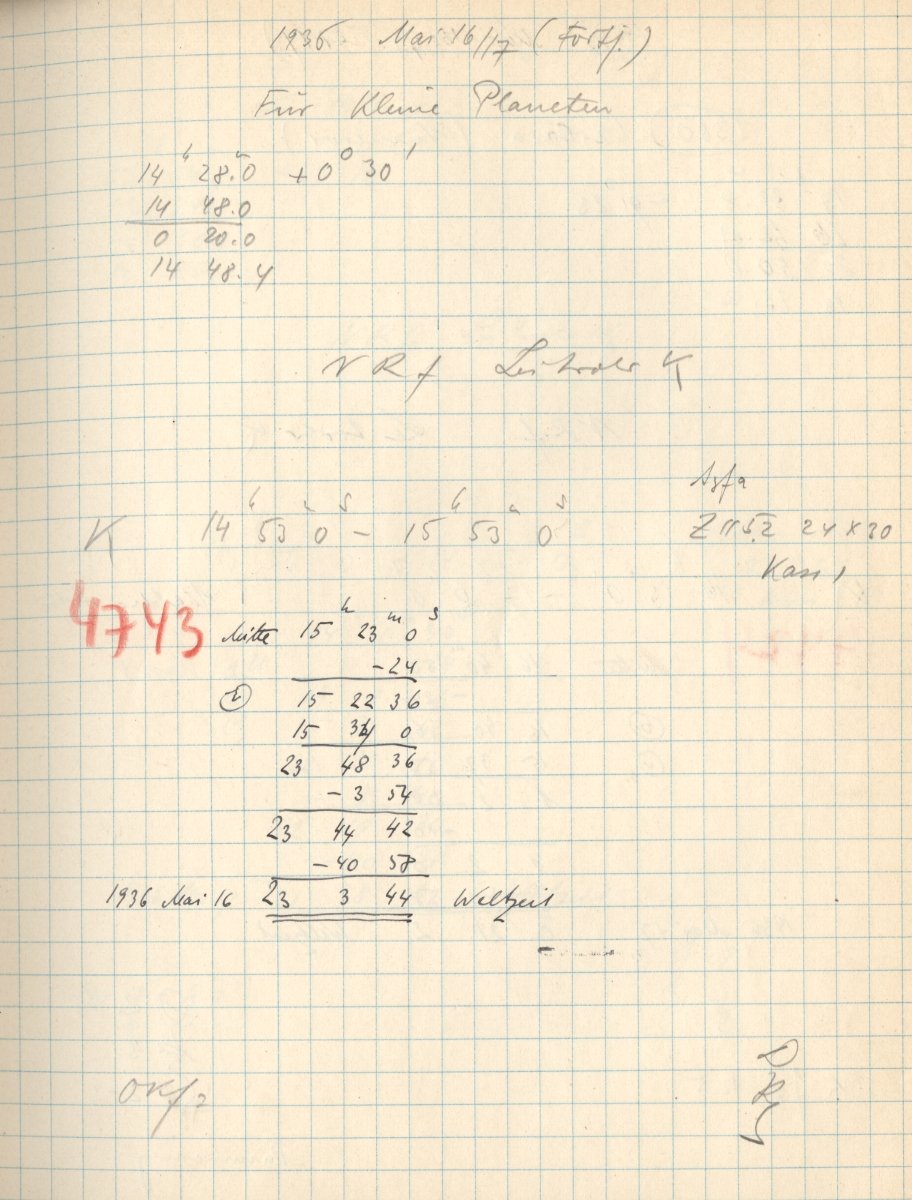 1936 Mai 16/17 (Forts.)
Für Kleine Planeten
14ʰ 28ᵐ.0 +0° 30'
14 48.0
0 20.0
14 48.4
K
Agfa
K 14ʰ 53ᵐ 0ˢ – 15ʰ 53ᵐ 0ˢ
24 x 30
Kass 1
4743
Mitte 15ʰ 23ᵐ 0ˢ
-24
15 22 36
15 34 0
23 48 36
-3 54
23 44 42
-40 58
1936 Mai 16 23 3 44 Weltzeit